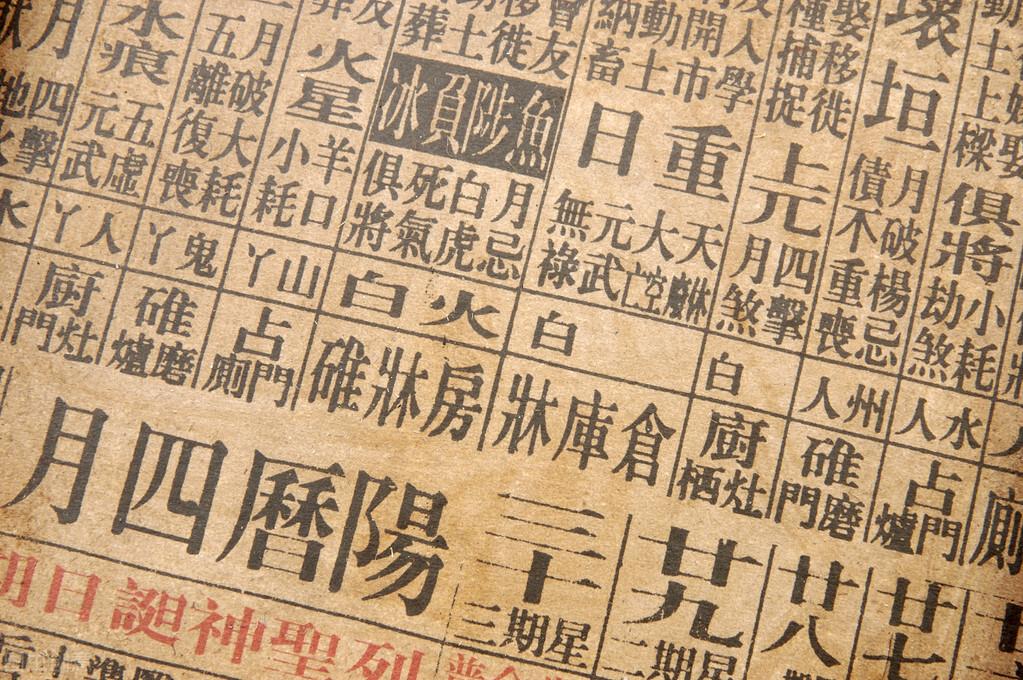 俱將
小耗
劫煞
水人
占門爐
廿七
壞垣
月破楊忌
債不重喪
州人
碓磨門
廿八
娶移徙
種捕捉
上元
四擊
月煞
白
廚灶栖
廿九
人學
開市
動土
納畜
重日
大空亡
元武
無祿
白
倉庫牀
三十
星期三
會友
移徙
土
葬
魚陟負冰
月忌
白虎
死氣
俱將
火白
房牀碓
火星
羊口
小耗
山丫
占門廁
月破大耗
五離復喪
鬼丫
碓磨爐
水痕
五虛
元武
人丫
廚灶門
四擊
陽曆四月
列聖神誕日